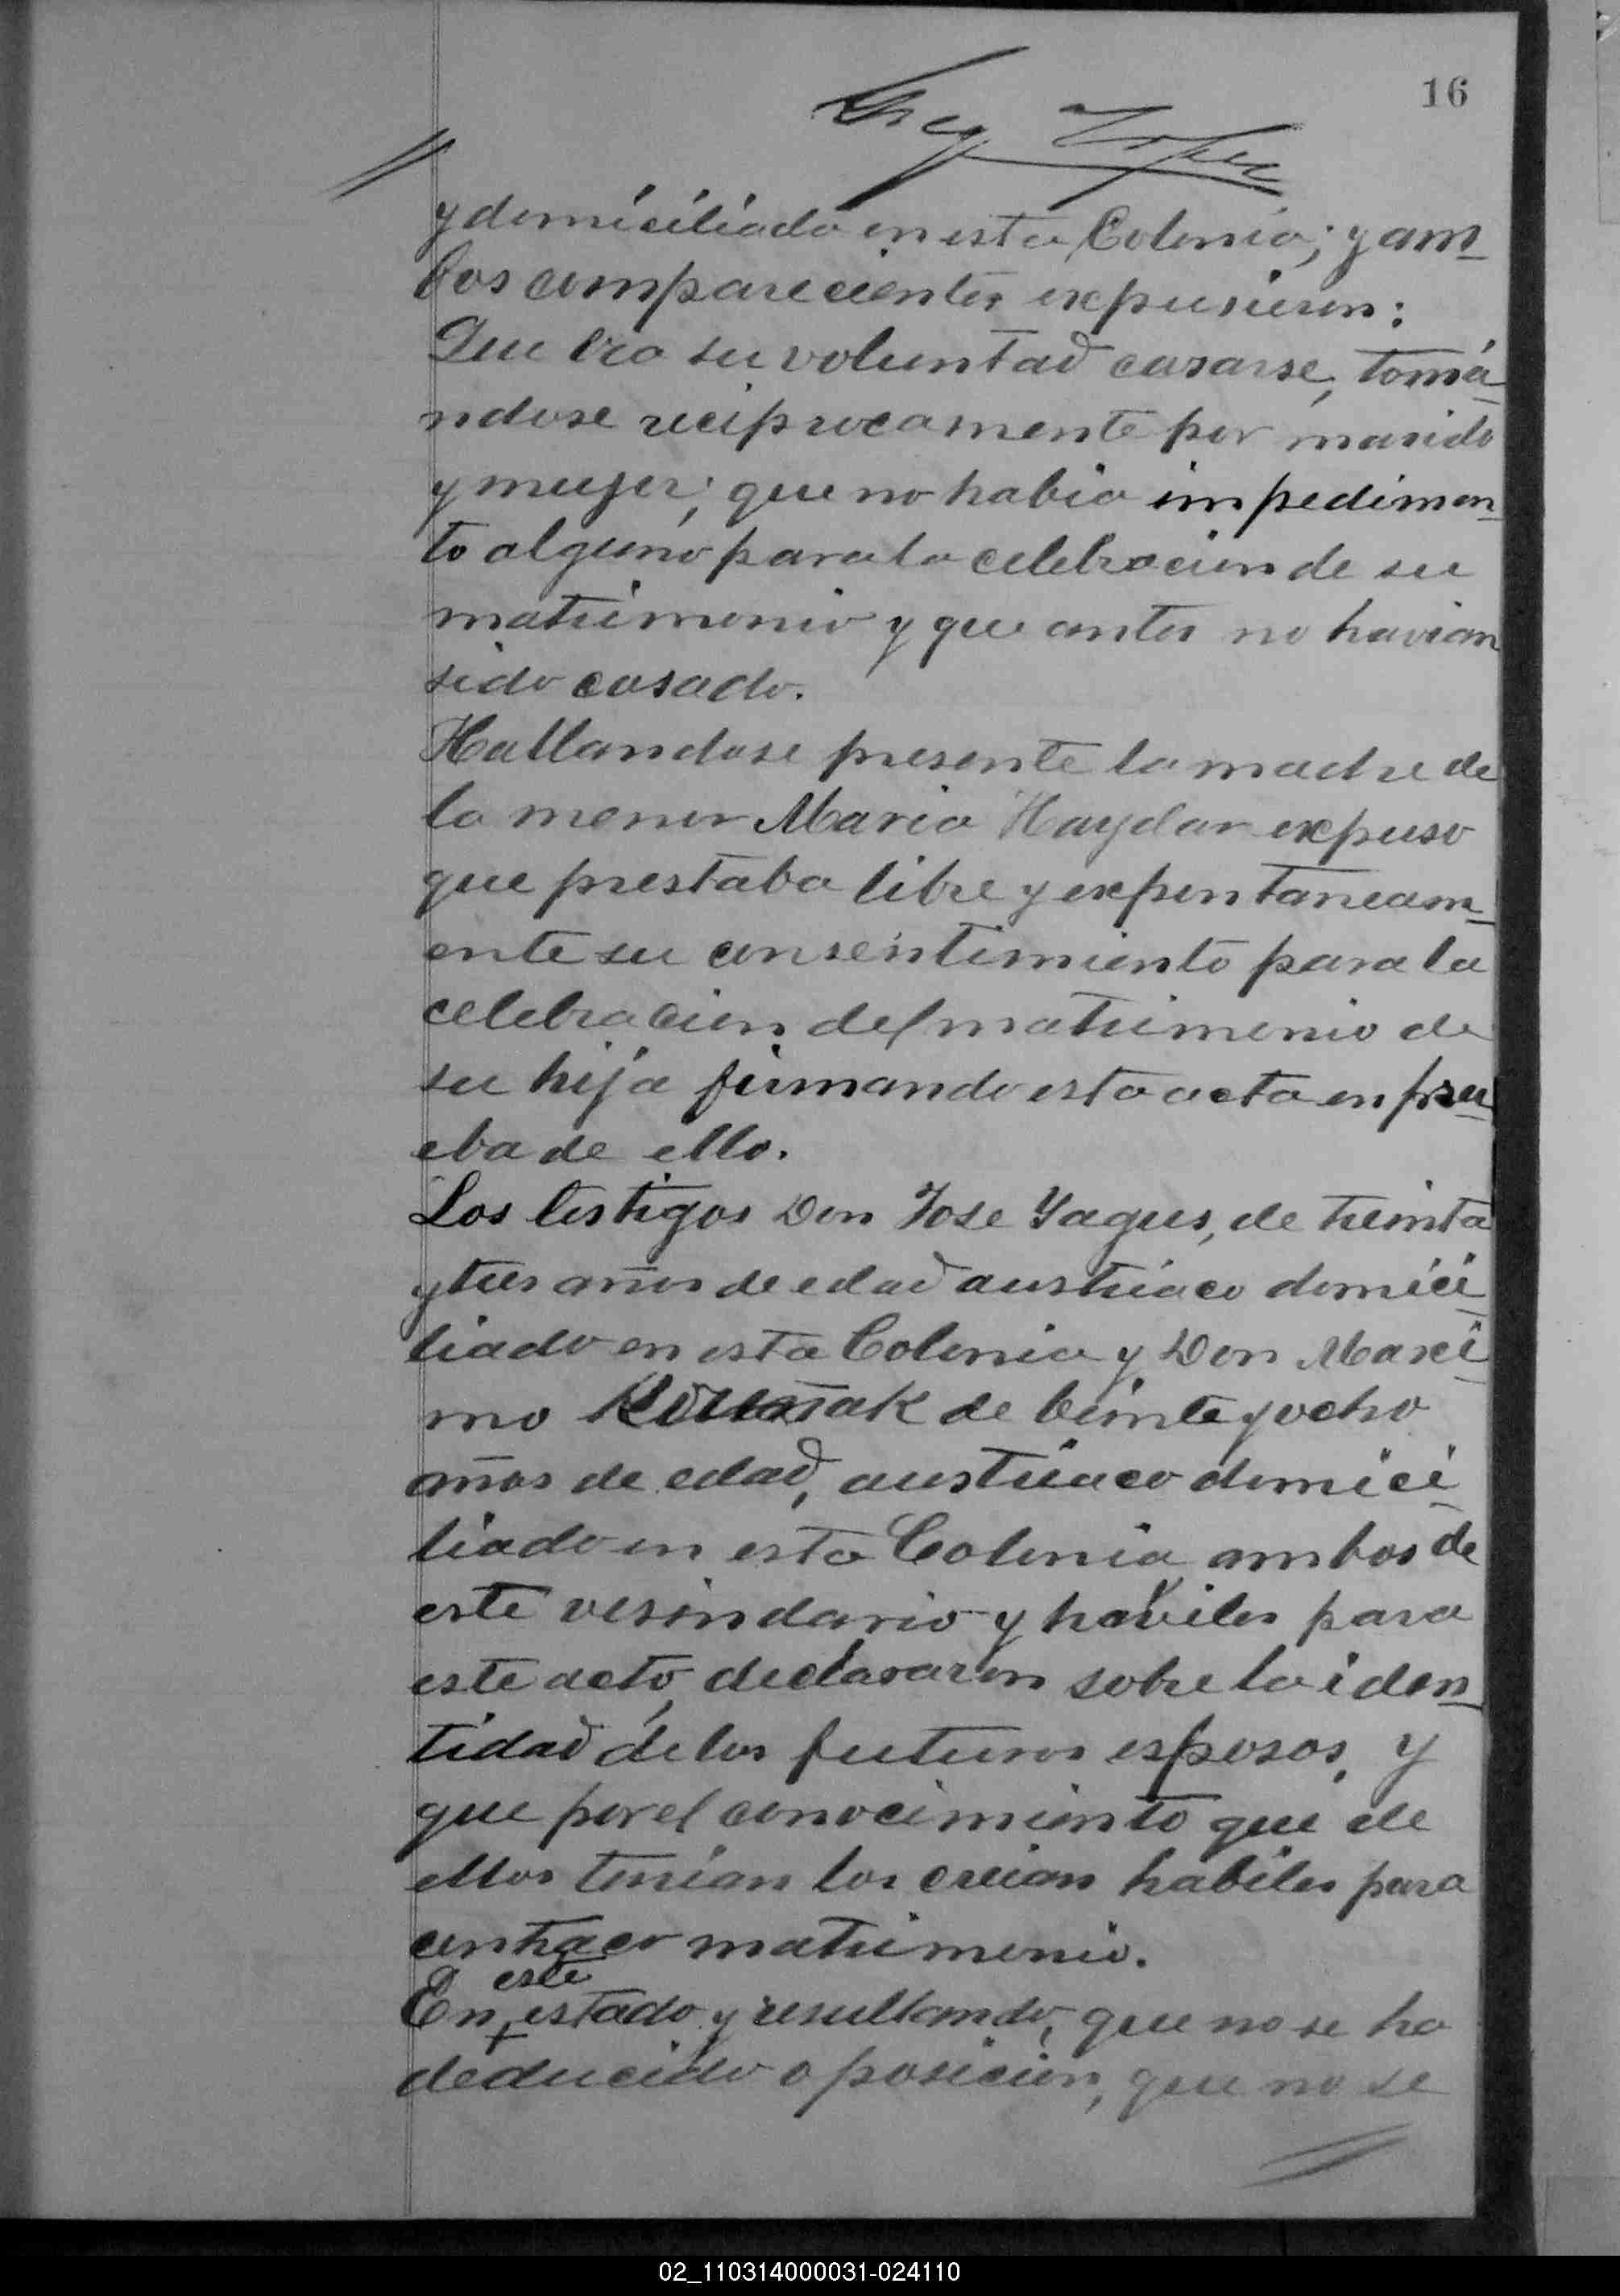 16
y domiciliado en esta Colonia; y am_
bos comparecientes expusieron:
Que era su voluntad casarse, tomá_
ndose reciprocamente por marido
y mujer; que no habia impedimen_
to alguno para la celebracion de su
matrimonio y que antes no havian
sido casado.
Hallandose presente la madre de
la menor Maria Haydar expuso
que prestaba libre y expontaneam_
ente su consentimiento para la
celebracion del matrimonio de
su hija firmando esta acta en pru_
eba de ello.
Los testigos Don Jose Yagus, de treinta
y tres años de edad austriaco domici_
liado en esta Colonia y Don Maxi_
mo de beinte y ocho
años de edad, austriaco domici_
liado en esta Colonia ambos de
este vesindario y haviles para
este acto, declararon sobre la iden_
tidad de los futuros esposos, y
que por el conocimiento que de
ellos tenian los creian habiles para
contraer matrimonio.
En este estado y resultando, que no se ha
deducido oposicion, que no se
02_110314000031-024110